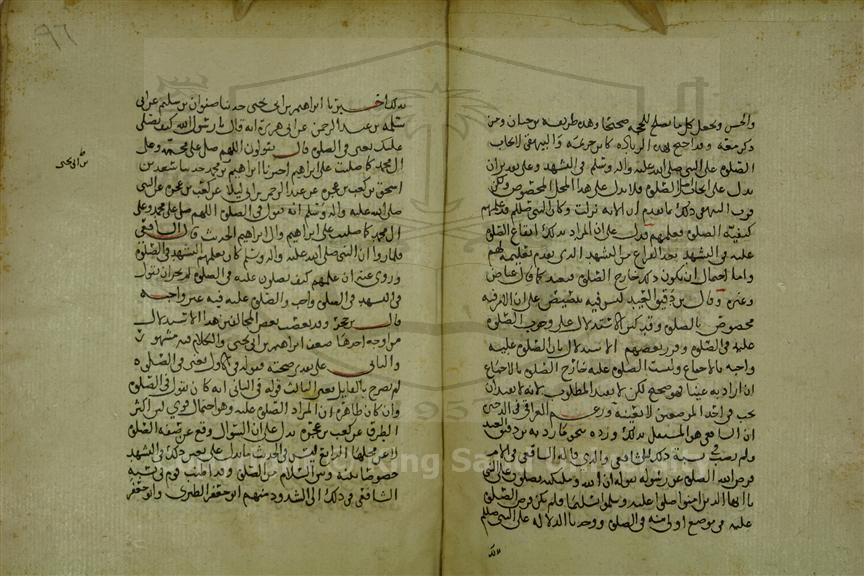 والحسن ويجعل كل ما يصلح للحجة صحيحا وهذه طريقه بن حبان ومن
ذكر معه وقد احتج بهذه الزيادة كابن خزيمة والبيهقي لايجاب
الصلوة على النبي صلى الله عليه واله وسلم في التشهد وعلى
يدل على ايجاب اصل الصلوة فلا يدل على هذا المحل المخصوص ولكن
قرب البيهقي ذلك بما تقدم ان الاية نزلت وكان النبي صلم قد علمهم
كيفية الصلوة فعلمهم فدل على ان المراد بذلك ايقاع الصلوة
عليه في التشهد بعد الفراغ من التشهد الذي تقدم تعليمه لهم
واما احتمال ان يكون ذلك خارج الصلوة فبعيد كما قال عياض
وغيره وقال بن دقيق العيد ليس فيه تنصيص على ان الامر فيه
مخصوص بالصلوة وقد كثر الاستدلال على وجوب الصلوة
عليه في الصلوة وقرر بعضهم الاستدلال بان الصلوة عليه
واجبه بالاجماع وليست الصلوة عليه خارج الصلوة بالاجماع
ان اراد به عينا فهو صحيح لكن لا يفيد المطلوب لانه لا يفيد ان
يجب في احد الموضعين لا بعينه وزعم القرافي في الذخيرة
ان الشافعي هو المستدل بذلك ورده بنحو ما رد به بن دقيق العيد
ولم يصب في نسبة ذلك للشافعي والذي قاله الشافعي في الام
فرض الله الصلوة على رسوله بقوله ان الله وملائكته يصلون على النبي
يا ايها الذين امنوا صلوا عليه وسلموا تسليما فلم يكن فرض الصلوة
عليه في موضع اولى منه في الصلوة ووجدنا الدلالة على النبي صلم
٩٦
بذلك اخبرنا ابراهيم بن ابي يحيى حدثنا صفوان بن سليم عن ابي
سلمه بن عبد الرحمن عن ابي هريرة انه قال يا رسول الله كيف نصلي
عليك يعني في الصلوة قال تقولون اللهم صل على محمد وعلى
ال محمد كما صليت على ابراهيم اخبرنا ابراهيم بن محمد حدثنا سعد بن
اسحق بن كعب بن عجره عن عبد الرحمن بن ابي ليلا عن كعب بن عجره عن النبي
صلى الله عليه واله وسلم انه يقول في الصلوة اللهم صل على محمد وعلى
ال محمد كما صليت على ابراهيم وال ابراهيم الحديث قال الشافعي
فلما روا ان النبي صلى الله عليه واله وسلم كان يعلمهم التشهد في الصلوة
وروي عنه ان علمهم كيف يصلون عليه في الصلوة لم يجز ان نقول
في التشهد في الصلوة واجب والصلوة عليه فيه غير واجبه
قال بن حجر وقد تعقب بعض المخالفين هذا الاستدلال
من اوجه احدها ضعف ابراهيم بن ابي يحيى والكلام فيه مشهور
والثاني على تقدير صحته فقوله في الاول يعني في الصلوة
لم يصرح بالقايل يعني الثالث قوله في الثاني انه كان يقول في الصلوة
وان كان ظاهره ان المراد الصلوة عليه وهو احتمال قوي لان اكثر
الطرق عن كعب بن عجره يدل على ان السوال وقع عن صفة الصلوة
لا عن محلها الرابع ليس في الحديث ما يدل على تعين ذلك في التشهد
خصوصا بينه وبين السلام من الصلوة وقد اطنب قوم في نسبة
الشافعي في ذلك الى الشذوذ منهم ابو جعفر الطبري وابو جعفر
بن ابي يحيى
King Saud University